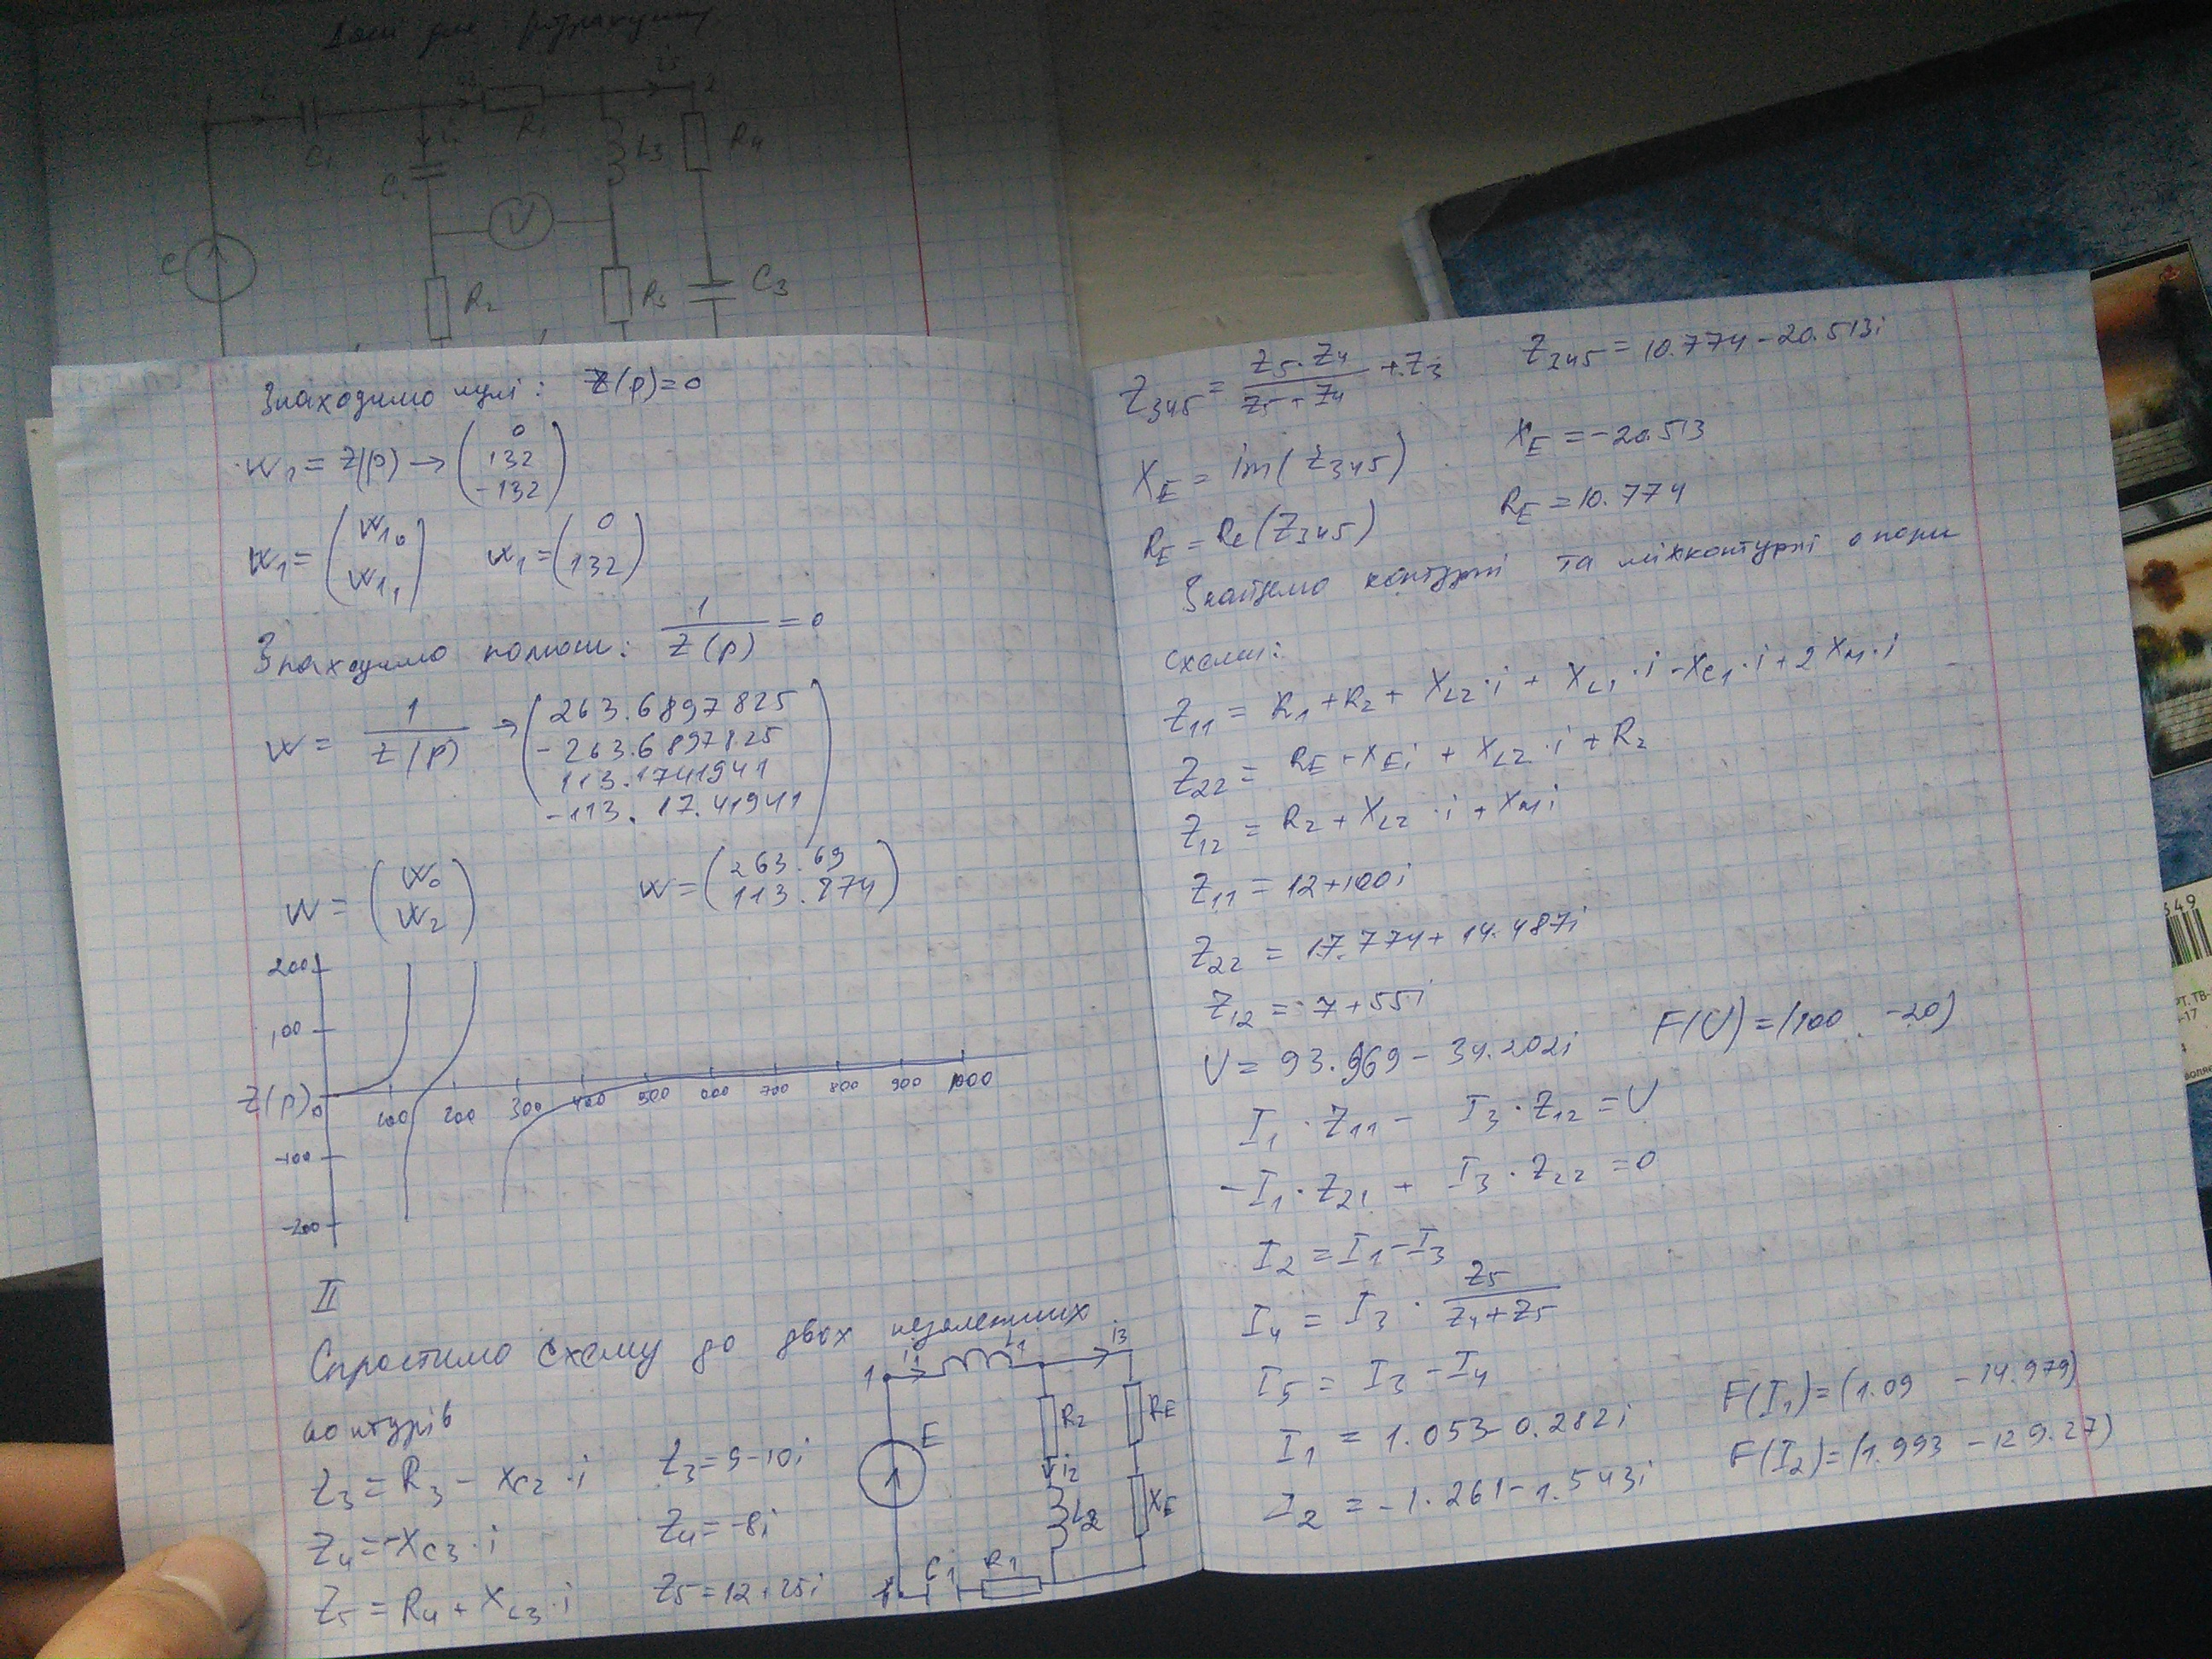 e
C1
C1
R1
L3
R4
V
R2
R3
C3
Знаходимо нулі: Z(p)=0
W1 = Z(p) → (0 132 -132)
W1 = (W10 W11) W1 = (0 132)
Знаходимо полюси: 1/Z(p) = 0
W = 1/Z(p) → (263.6897825 -263.6897825 113.1741941 -113.17.41941)
W = (W0 W2) W = (263.69 113.874)
200
100
Z(p) 0
100 200 300 400 500 600 700 800 900 1000
-100
-200
II
Спростимо схему до двох незалежних
контурів
Z3 = R3 - XC2·i Z3 = 9-10i
Z4 = -XC3·i Z4 = -8i
Z5 = R4 + XL3·i Z5 = 12+25i
1 i1 L1 i3
E R2 RE
i2
L2 XE
C1 R1
Z345 = Z5·Z4/(Z5+Z4) + Z3 Z345 = 10.774-20.513i
XE = im(Z345) XE = -20.513
RE = Re(Z345) RE = 10.774
Знайдемо контурні та міжконтурні опори
схеми:
Z11 = R1+R2+XL2·i+XL1·i-XC1·i+2XM·i
Z22 = RE+XEi+XL2·i+R2
Z12 = R2+XL2·i+XMi
Z11 = 12+100i
Z22 = 17.774+14.487i
Z12 = 7+55i
U = 93.969-34.202i F(U)=(100 -20)
I1·Z11 - I3·Z12 = U
-I1·Z21 + I3·Z22 = 0
I2 = I1-I3
I4 = I3·Z5/(Z4+Z5)
I5 = I3-I4
I1 = 1.053-0.282i F(I1)=(1.09 -14.979)
I2 = -1.261-1.543i F(I2)=(1.993 -129.27)